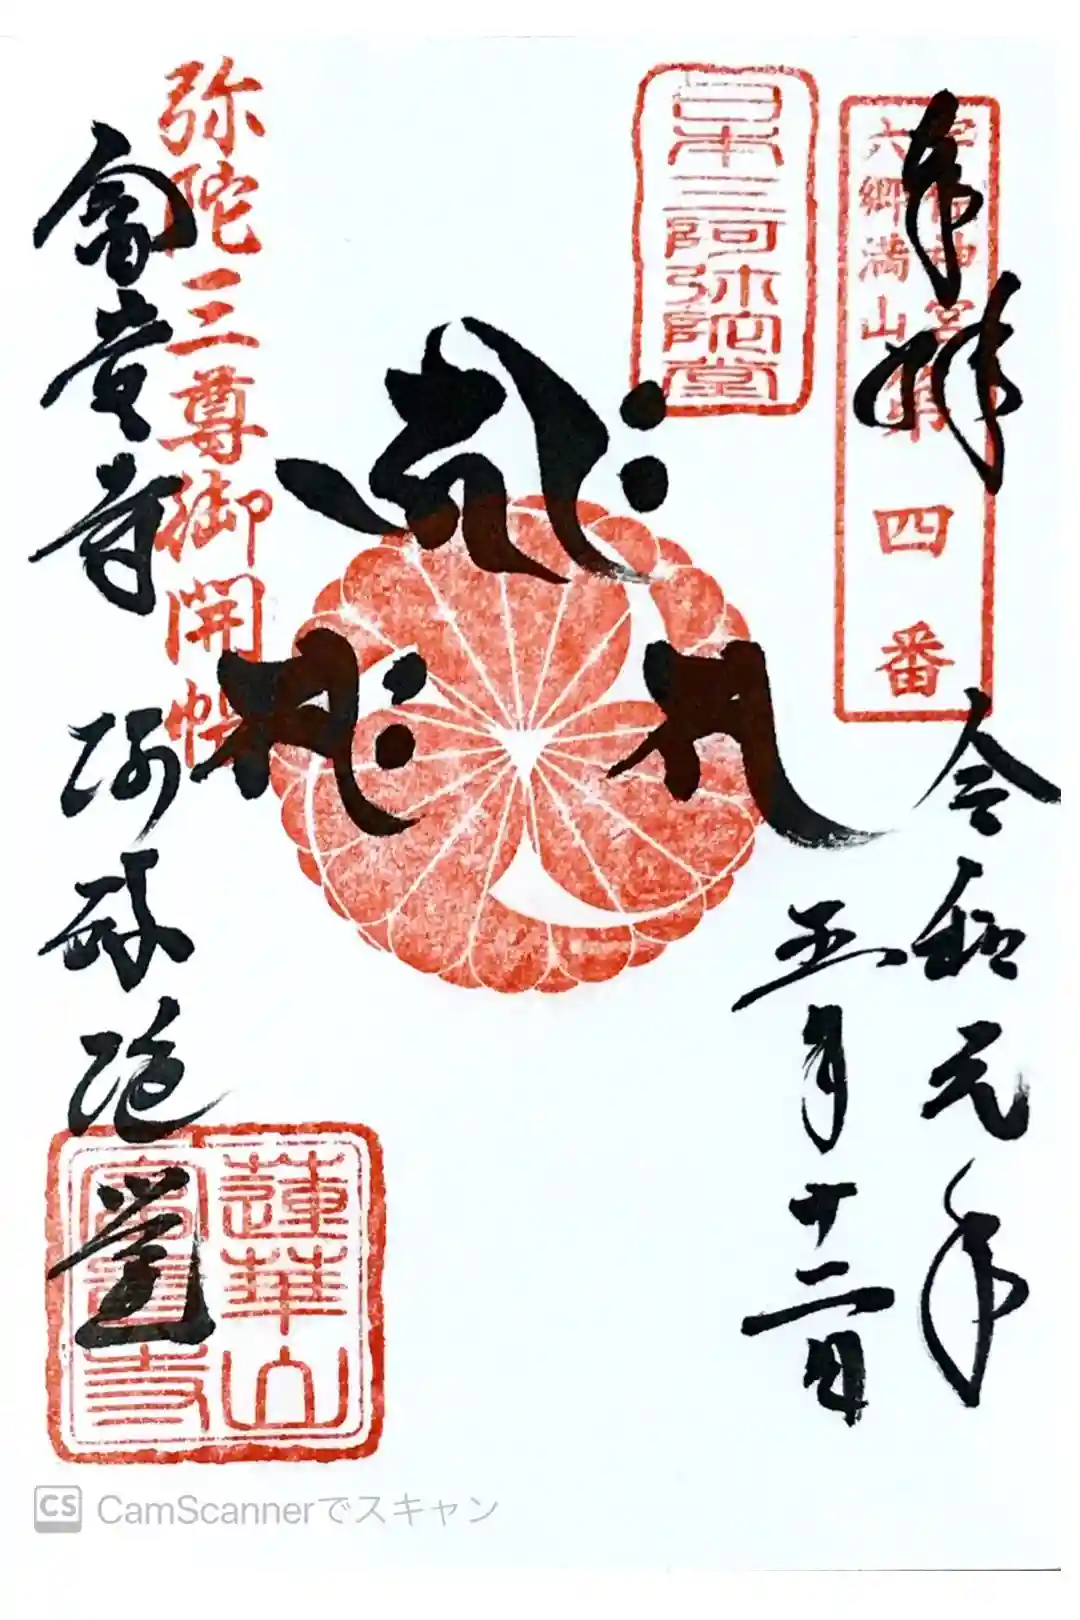 奉拝
宇佐神宮
六郷満山
第四番
令和元年
五月十二日
日本三阿弥陀堂
キリーク
サ
サク
弥陀三尊御開帳
富貴寺 阿弥陀堂
蓮華山
富貴寺
CS CamScannerでスキャン